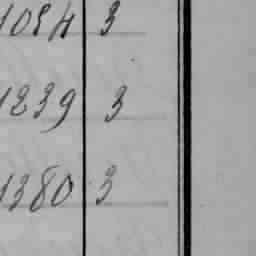 1054 3
1239 3
1380 3